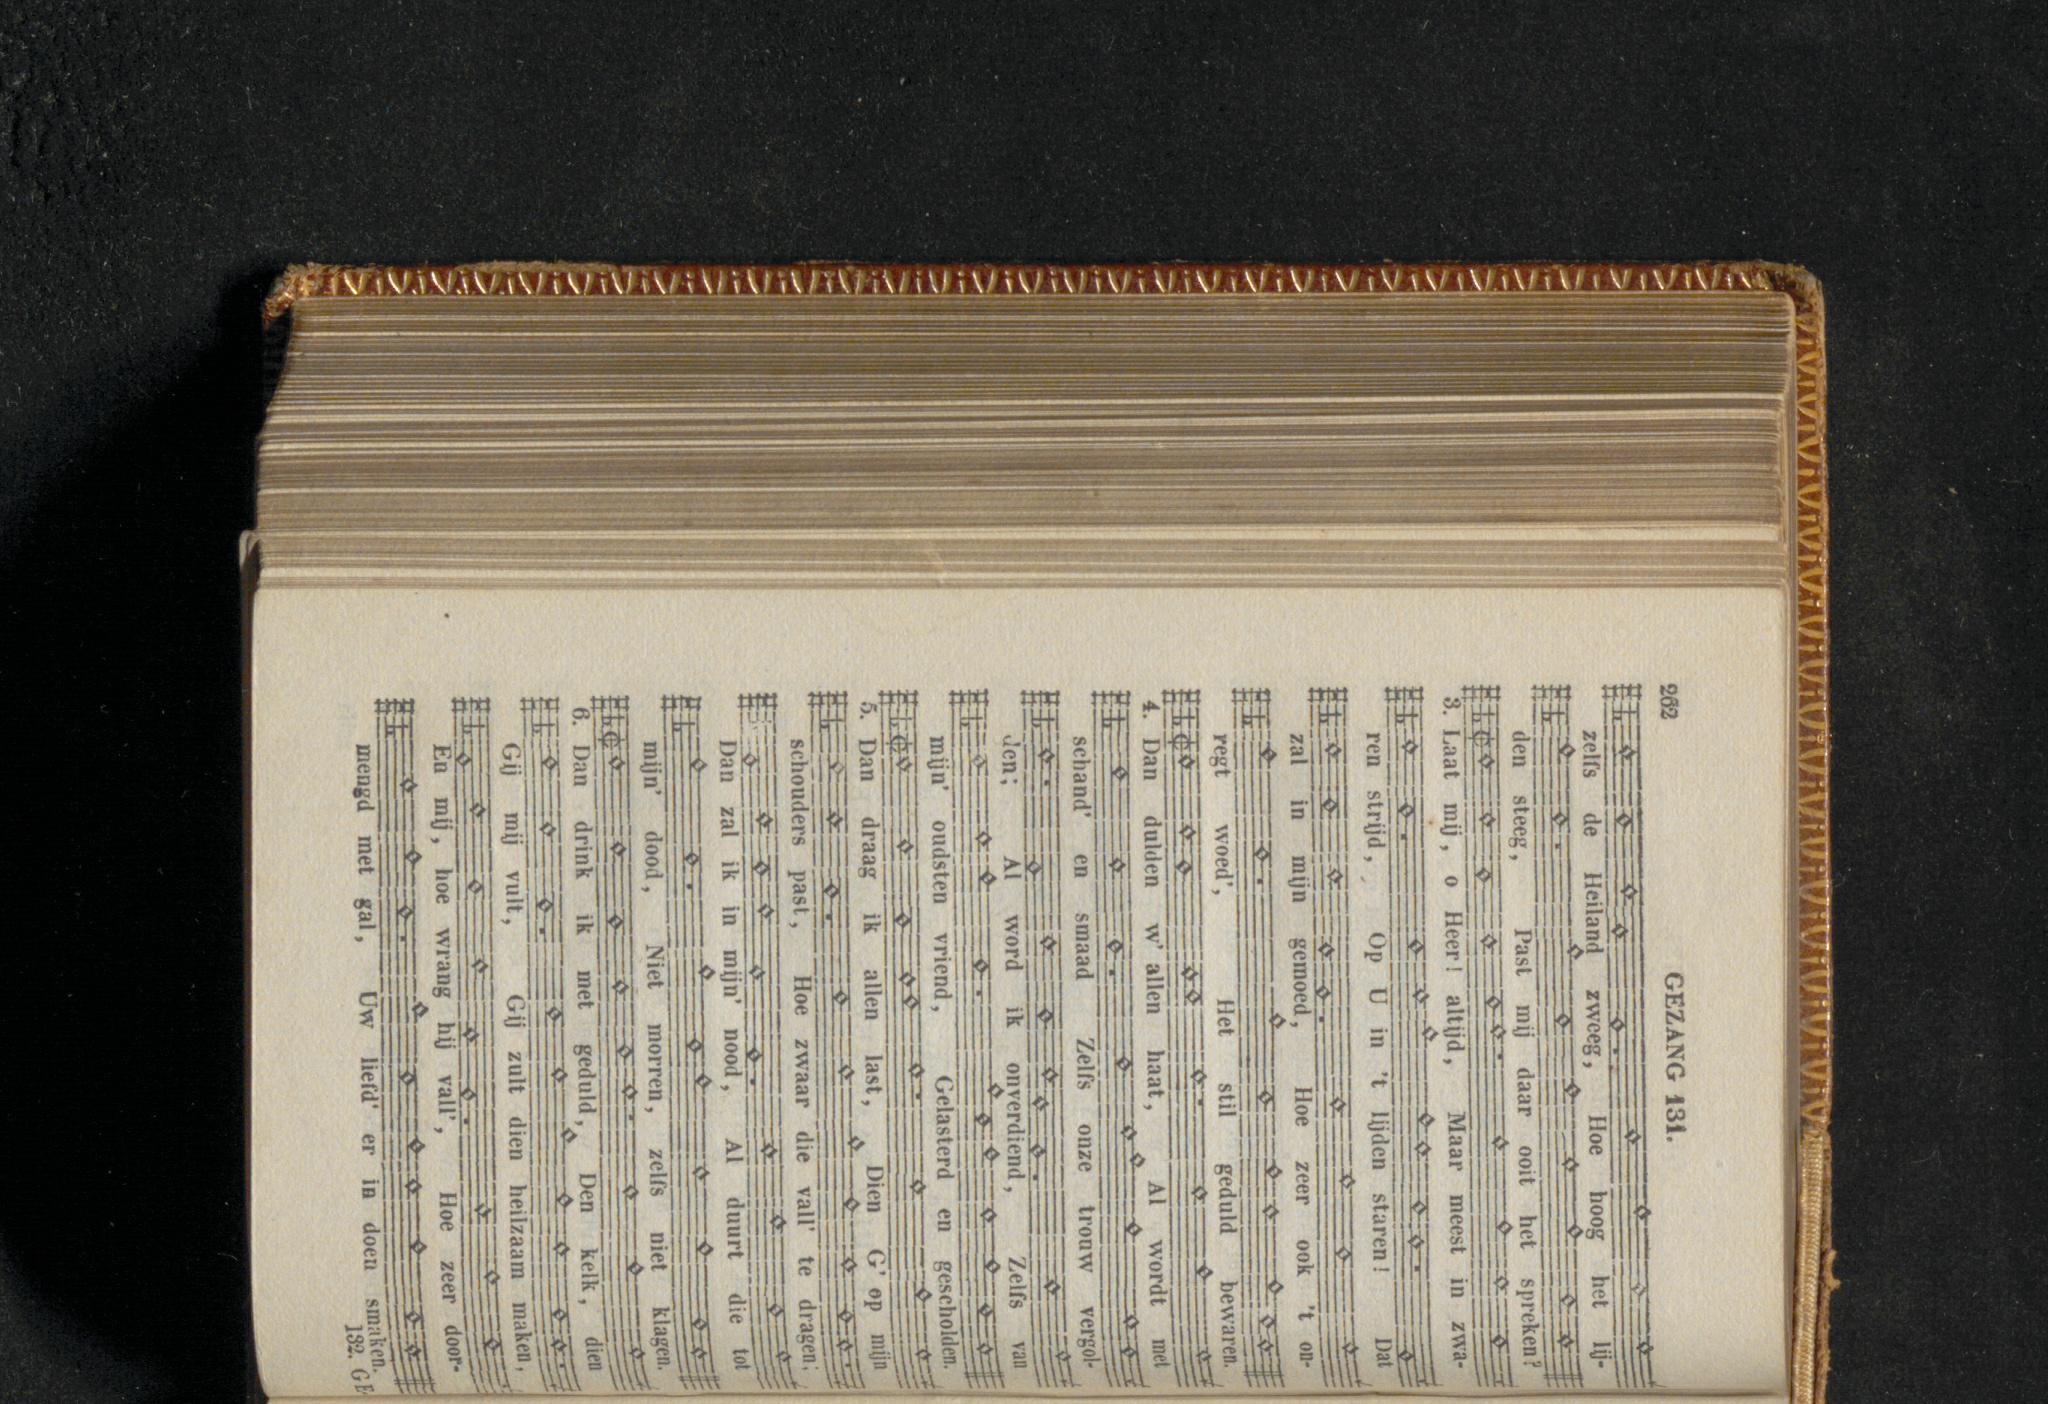 262
GEZANG 131.
zelfs de Heiland zweeg, Hoe hoog het lij-
den steeg, Past mij daar ooit het spreken?
3. Laat mij, o Heer! altijd, Maar meest in zwa-
ren strijd, Op U in 't lijden staren! Dat
zal in mijn gemoed, Hoe zeer ook 't on-
regt woed', Het stil geduld bewaren.
4. Dan dulden w' allen haat, Al wordt met
schand' en smaad Zelfs onze trouw vergol-
den; Al word ik onverdiend, Zelfs van
mijn' oudsten vriend, Gelasterd en gescholden.
5. Dan draag ik allen last, Dien G' op mijn
schouders past, Hoe zwaar die vall' te dragen;
Dan zal ik in mijn' nood, Al duurt die tot
mijn' dood, Niet morren, zelfs niet klagen.
6. Dan drink ik met geduld, Den kelk, dien
Gij mij vult, Gij zult dien heilzaam maken,
En mij, hoe wrang hij vall', Hoe zeer door-
mengd met gal, Uw liefd' er in doen smaken.
132. GE-